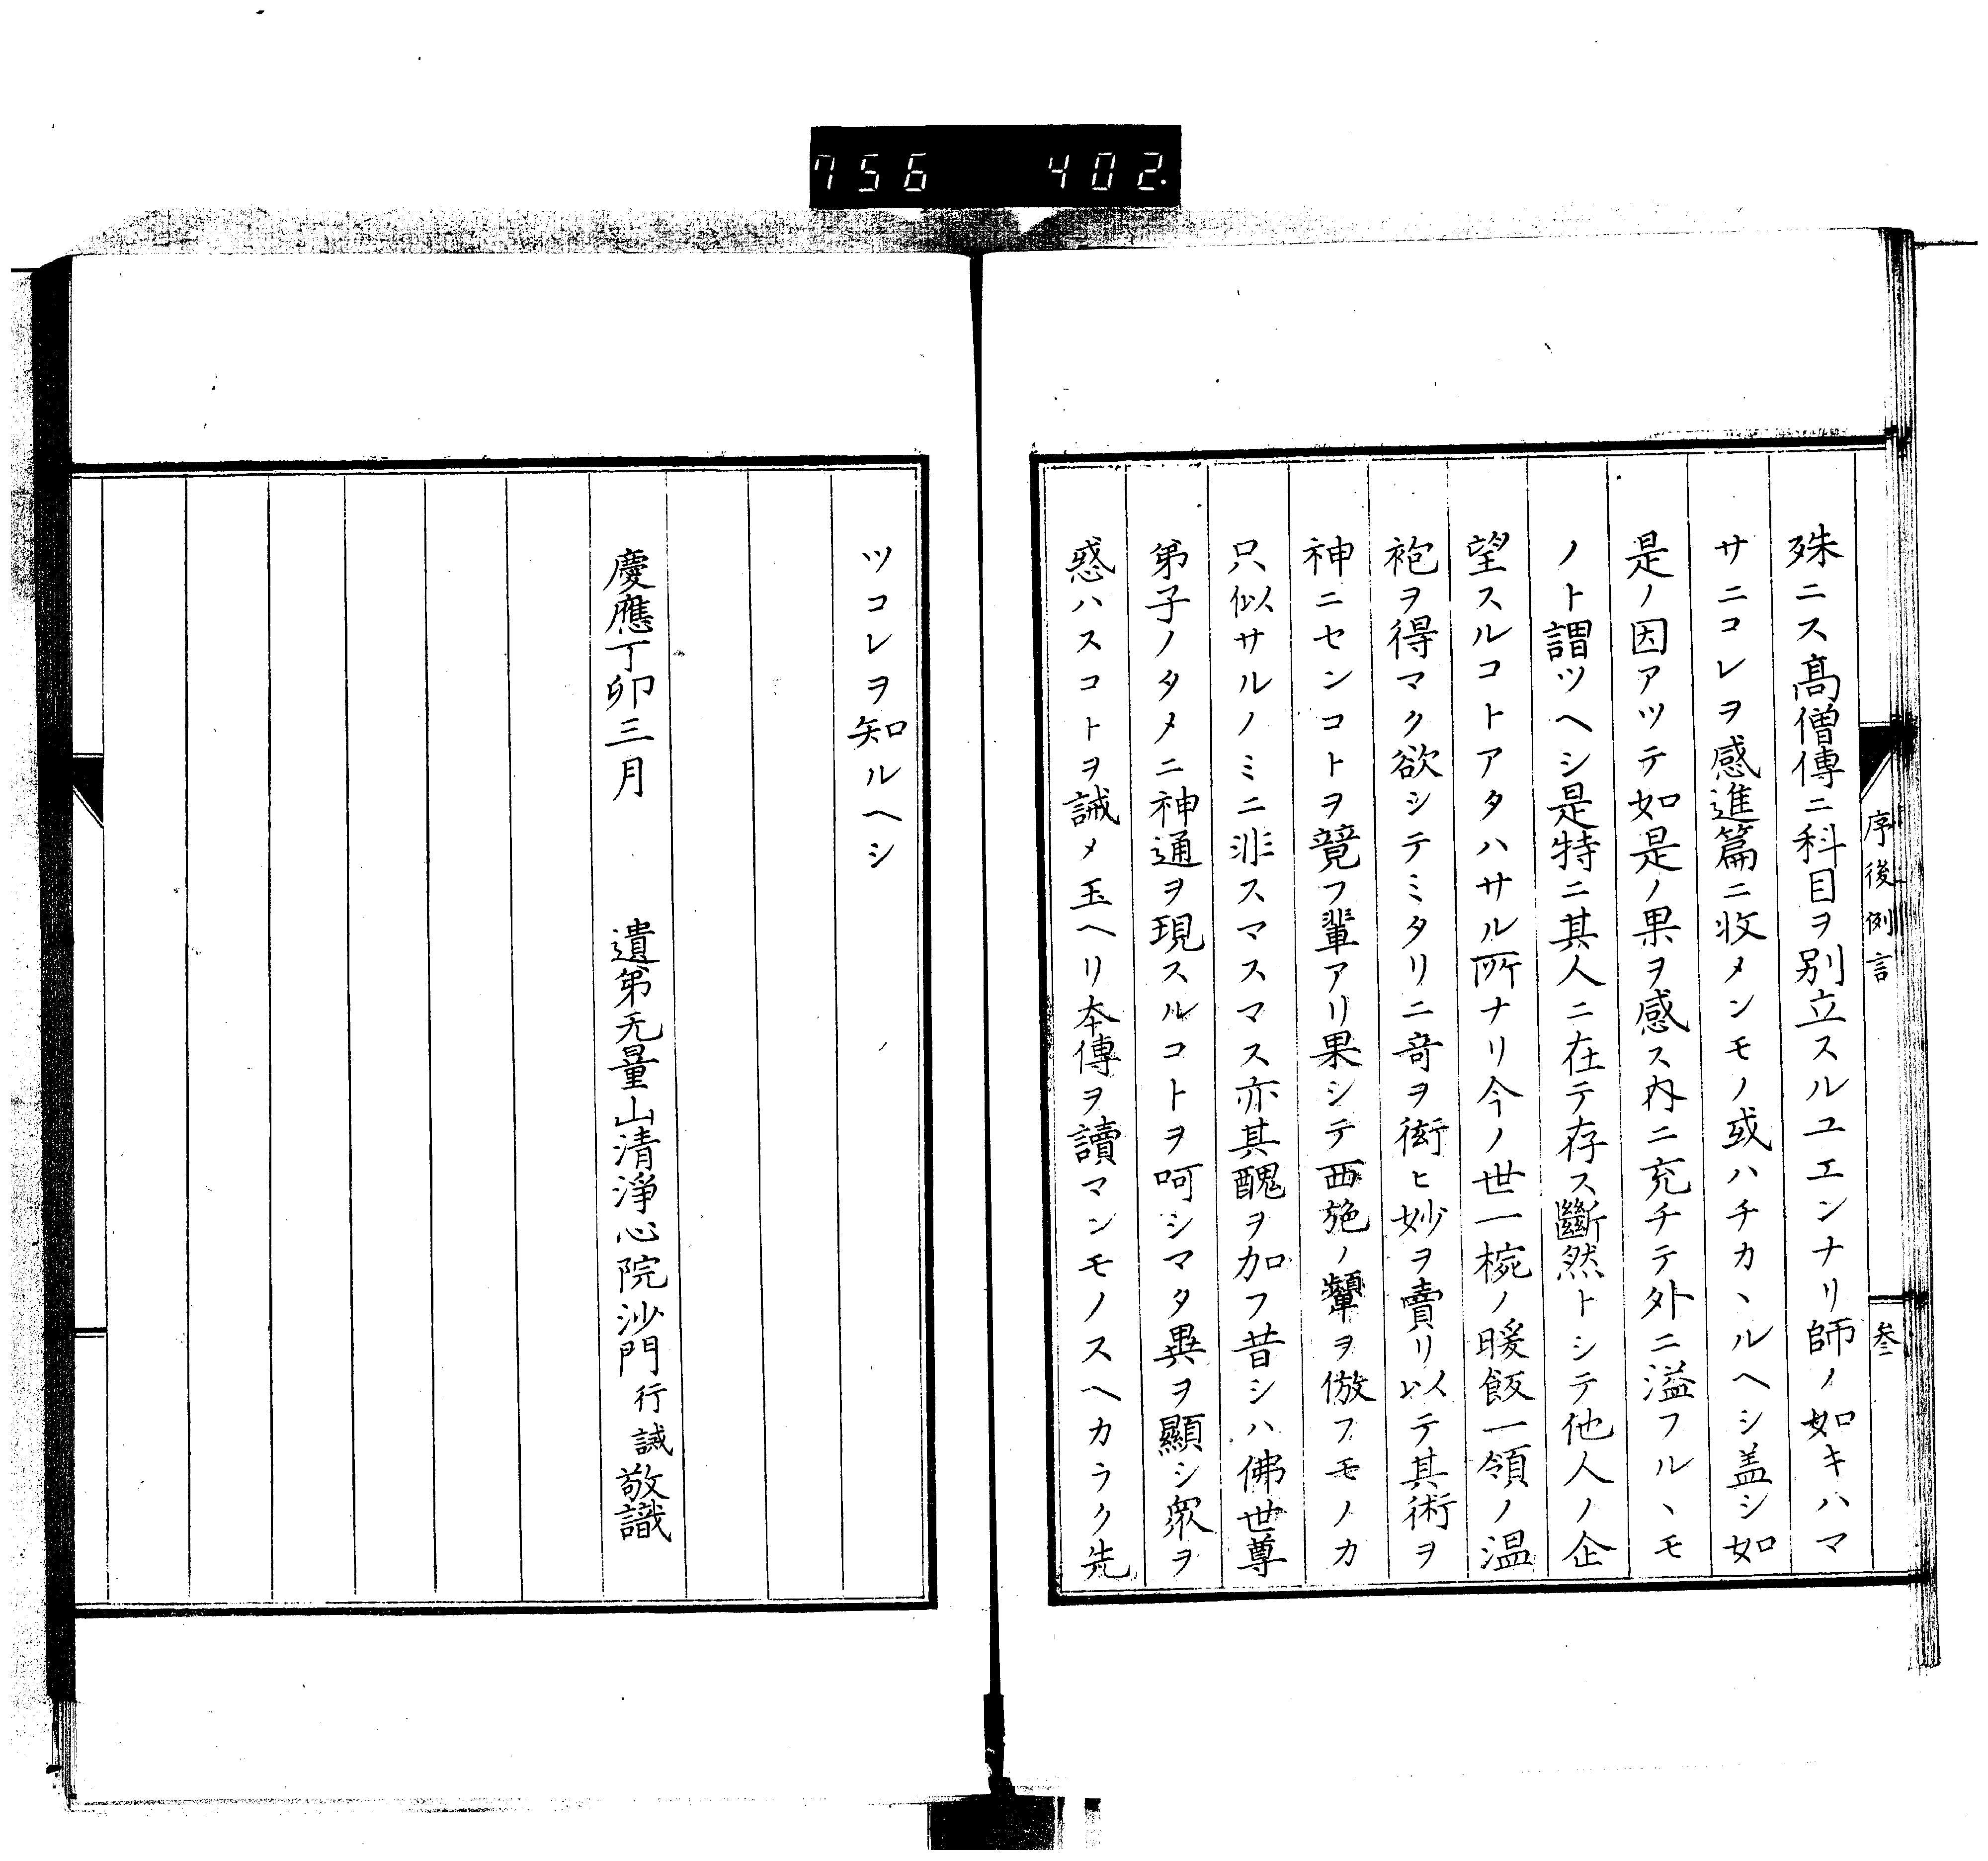 756 402.
序後例言
叁
殊ニス髙僧傳ニ科目ヲ别立スルユエンナリ師ノ如キハマ
サニコレヲ感進篇ニ收メンモノ或ハチカヽルヘシ盖シ如
是ノ因アツテ如是ノ果ヲ感ス内ニ充チテ外ニ溢フルヽモ
ノト謂ツヘシ是特ニ其人ニ在テ存ス斷然トシテ他人ノ企
望スルコトアタハサル所ナリ今ノ世一椀ノ暖飯一領ノ温
袍ヲ得マク欲シテミタリニ竒ヲ衒ヒ妙ヲ賣リ以テ其術ヲ
神ニセンコトヲ競フ輩アリ果シテ西施ノ顰ヲ倣フモノカ
只似サルノミニ非スマスマス亦其醜ヲ加フ昔シハ佛世尊
弟子ノタメニ神通ヲ現スルコトヲ呵シマタ異ヲ顯シ衆ヲ
惑ハスコトヲ誡メ玉ヘリ本傳ヲ讀マンモノスヘカラク先
ツコレヲ知ルヘシ
慶應丁卯三月 遺弟无量山清淨心院沙門行誡敬識